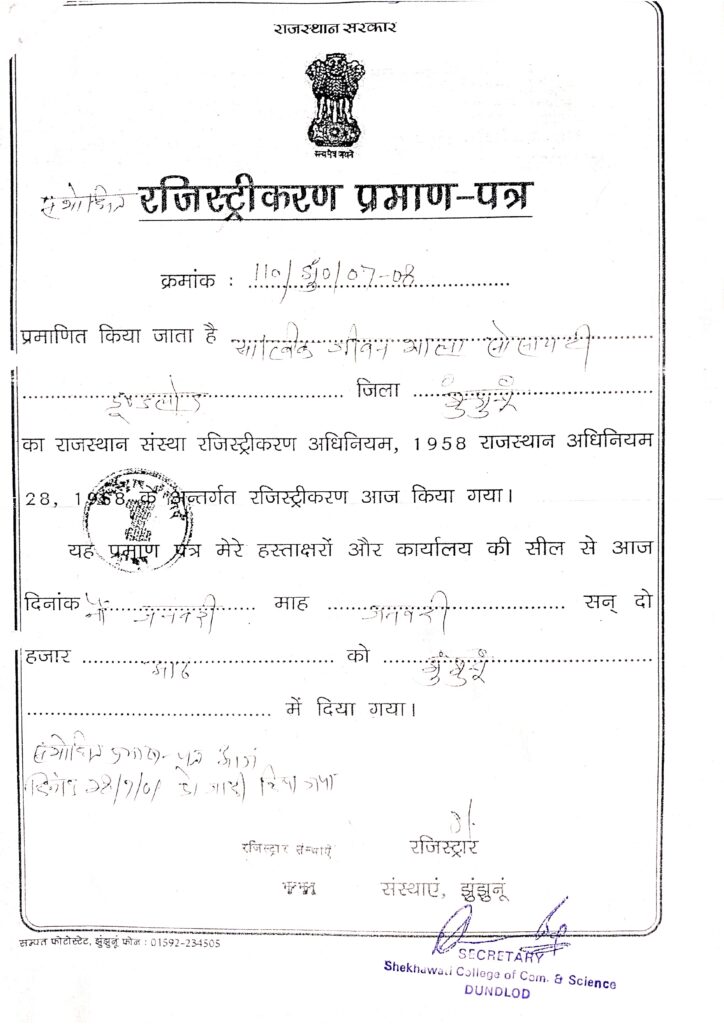 राजस्थान सरकार
सत्यमेव जयते
संशोधित रजिस्ट्रीकरण प्रमाण-पत्र
क्रमांक : 110/झुं0/07-08
प्रमाणित किया जाता है सात्विक जीवन आशा सोसायटी
डूण्डलोद जिला झुंझुनूं
का राजस्थान संस्था रजिस्ट्रीकरण अधिनियम, 1958 राजस्थान अधिनियम
28, 1958 के अन्तर्गत रजिस्ट्रीकरण आज किया गया।
यह प्रमाण पत्र मेरे हस्ताक्षरों और कार्यालय की सील से आज
दिनांक नौ जनवरी माह जनवरी सन् दो
हजार आठ को झुंझुनूं
में दिया गया।
संशोधित प्रमाण-पत्र आज
दिनांक को जारी किया गया
रजिस्ट्रार संस्थाऐं रजिस्ट्रार
संस्थाएं, झुंझुनूं
सम्पत फोटोस्टेट, झुंझुनू फोन : 01592-234505
SECRETARY
Shekhawati College of Com. & Science
DUNDLOD